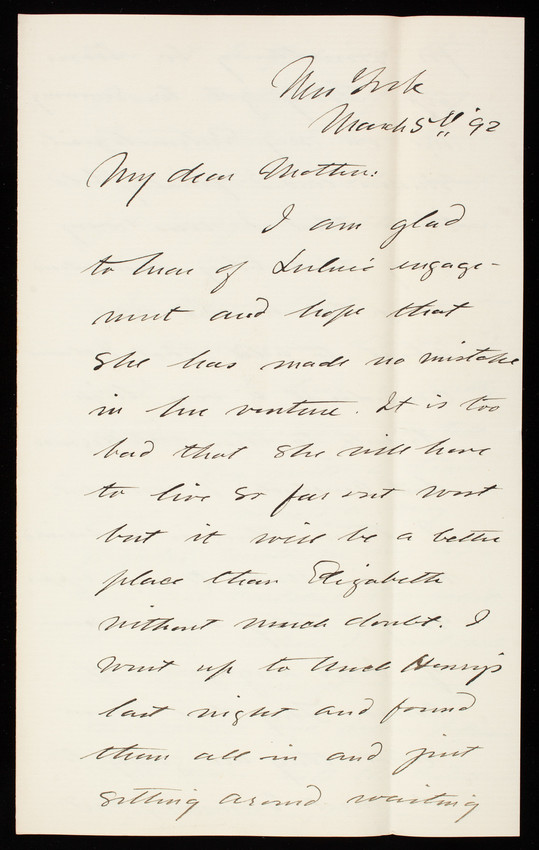 New York
March 5th '92
My dear Mother:
I am glad
to hear of Lulu's engage-
ment and hope that
she has made no mistake
in her venture. It is too
bad that she will have
to live so far out west
but it will be a better
place than Elizabeth
without much doubt. I
went up to Uncle Henry's
last night and found
them all in and just
sitting around waiting